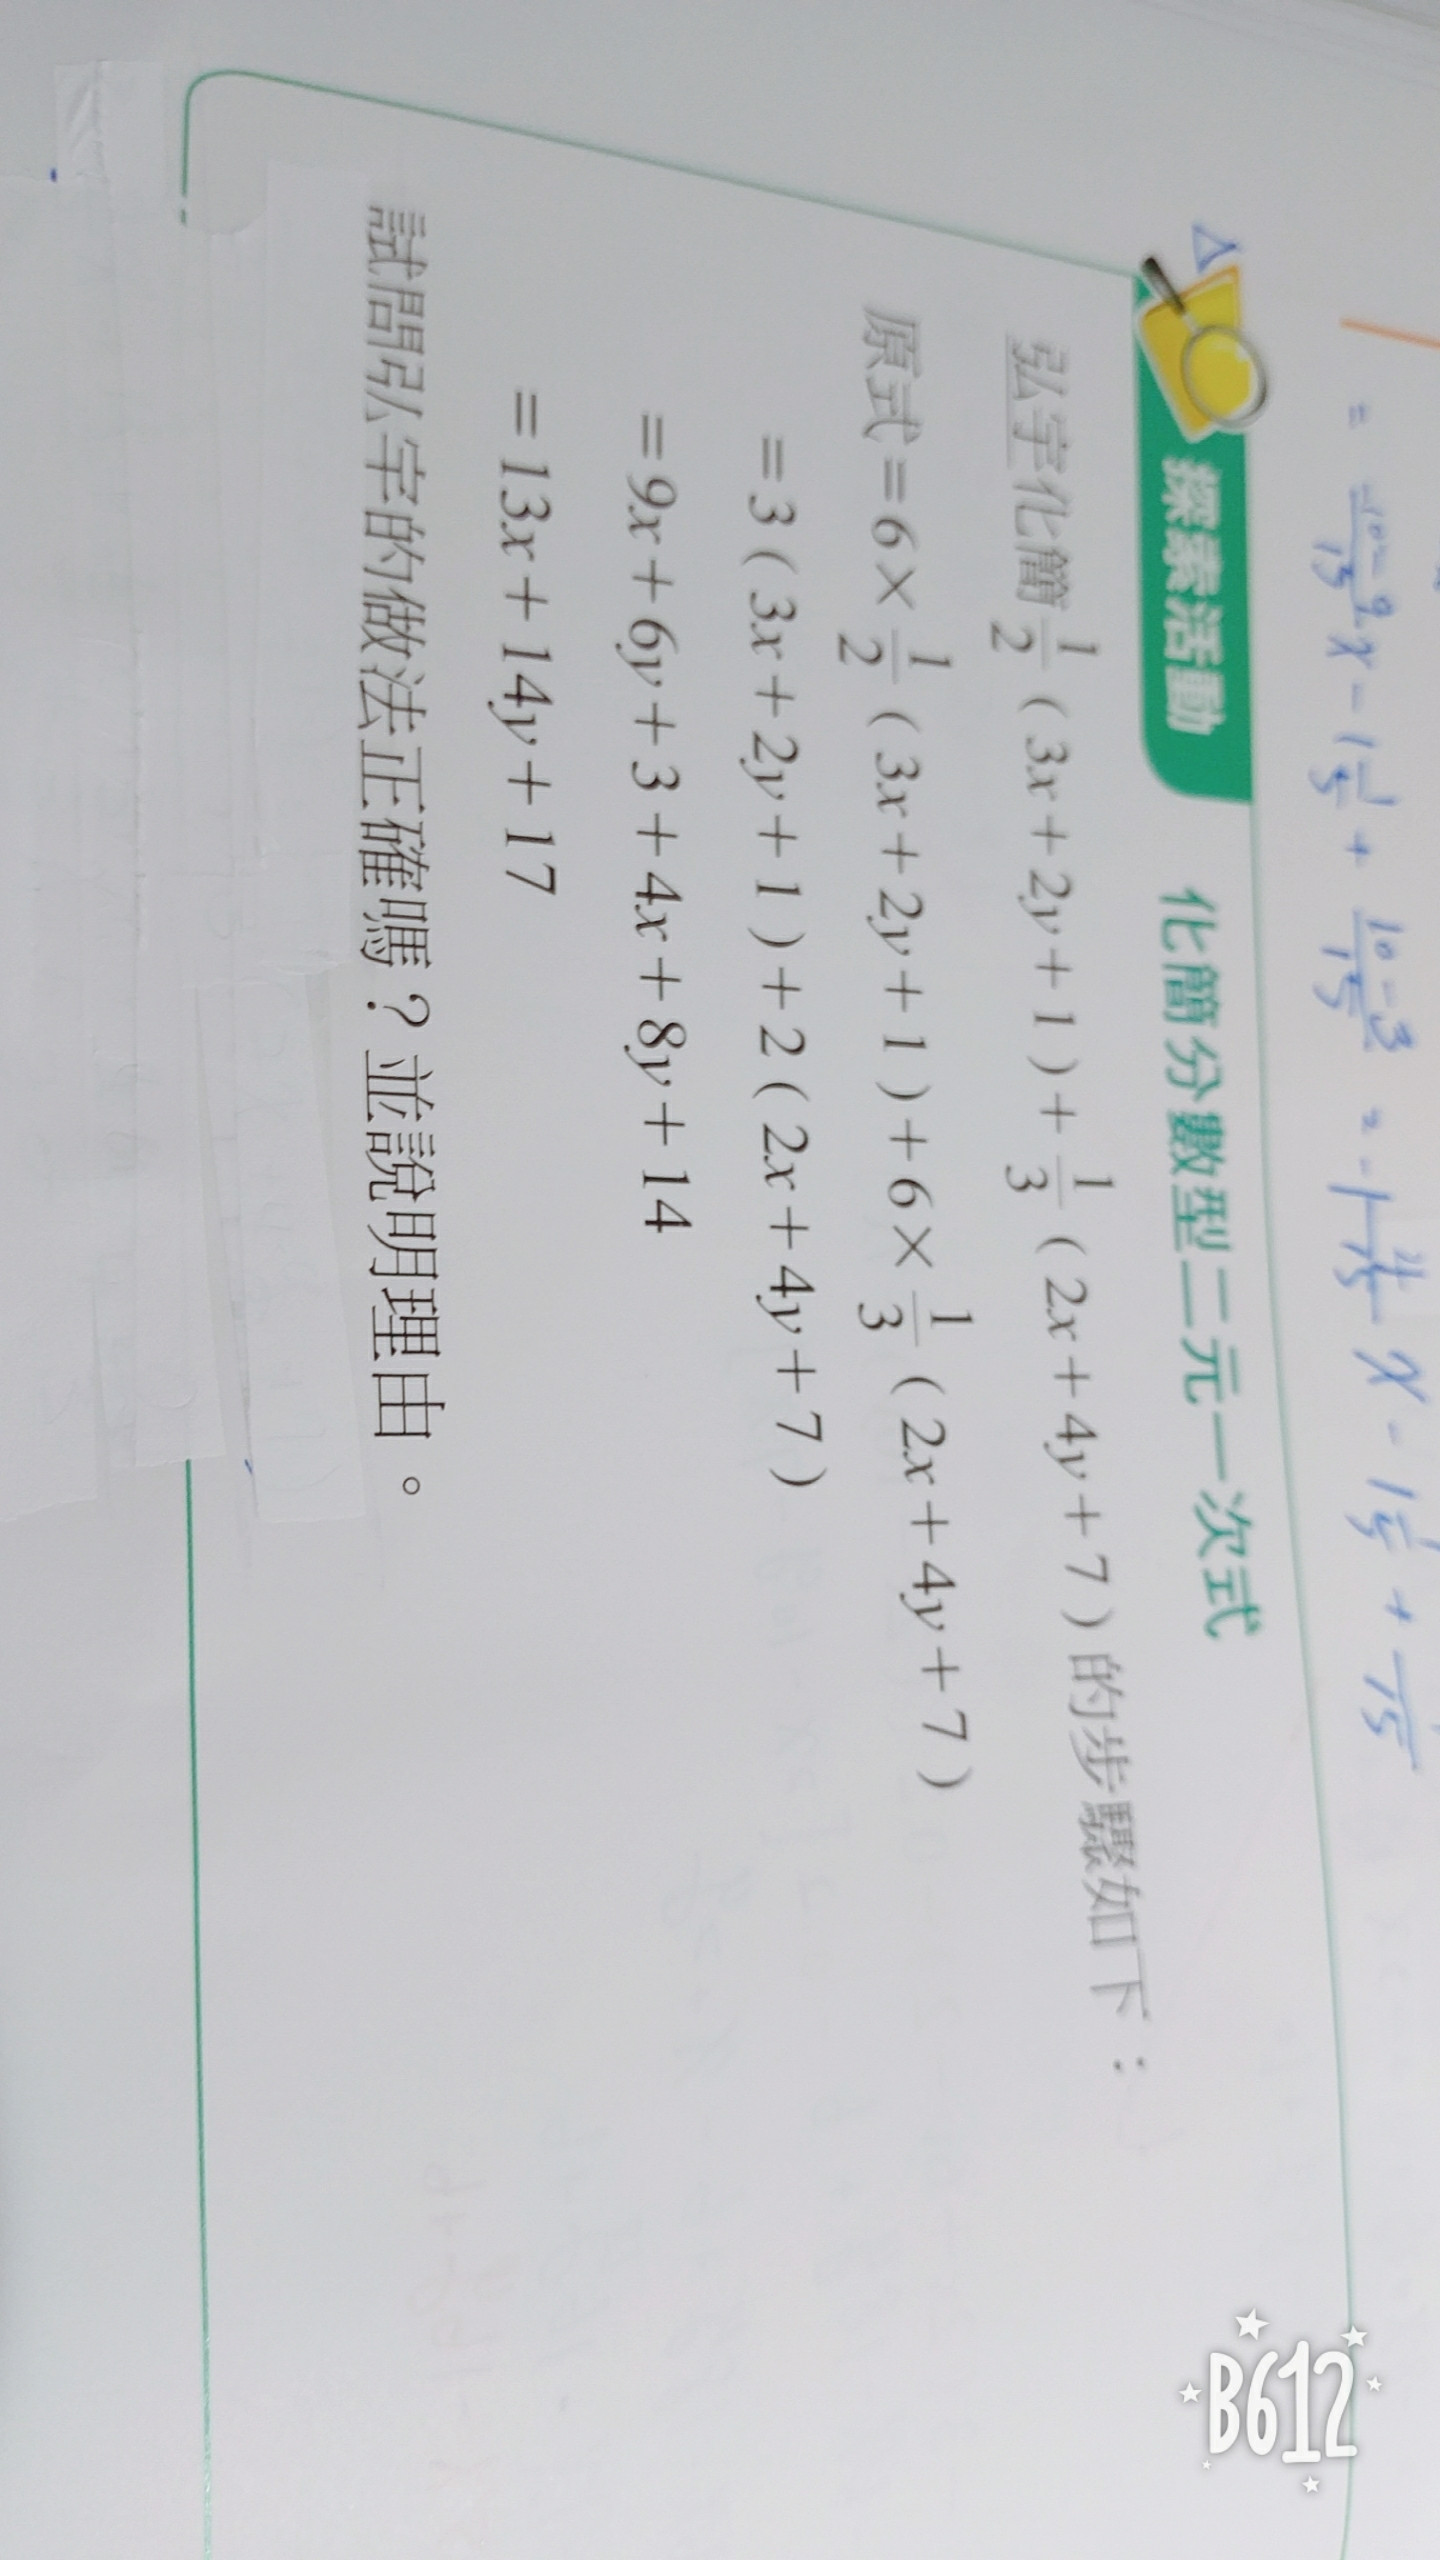 = x - 1 1/5 +
探索活動 化簡分數型二元一次式
弘宇化簡 1/2 ( 3x + 2y + 1 ) + 1/3 ( 2x + 4y + 7 ) 的步驟如下：
原式 = 6 × 1/2 ( 3x + 2y + 1 ) + 6 × 1/3 ( 2x + 4y + 7 )
= 3 ( 3x + 2y + 1 ) + 2 ( 2x + 4y + 7 )
= 9x + 6y + 3 + 4x + 8y + 14
= 13x + 14y + 17
試問弘宇的做法正確嗎？並說明理由。
B612